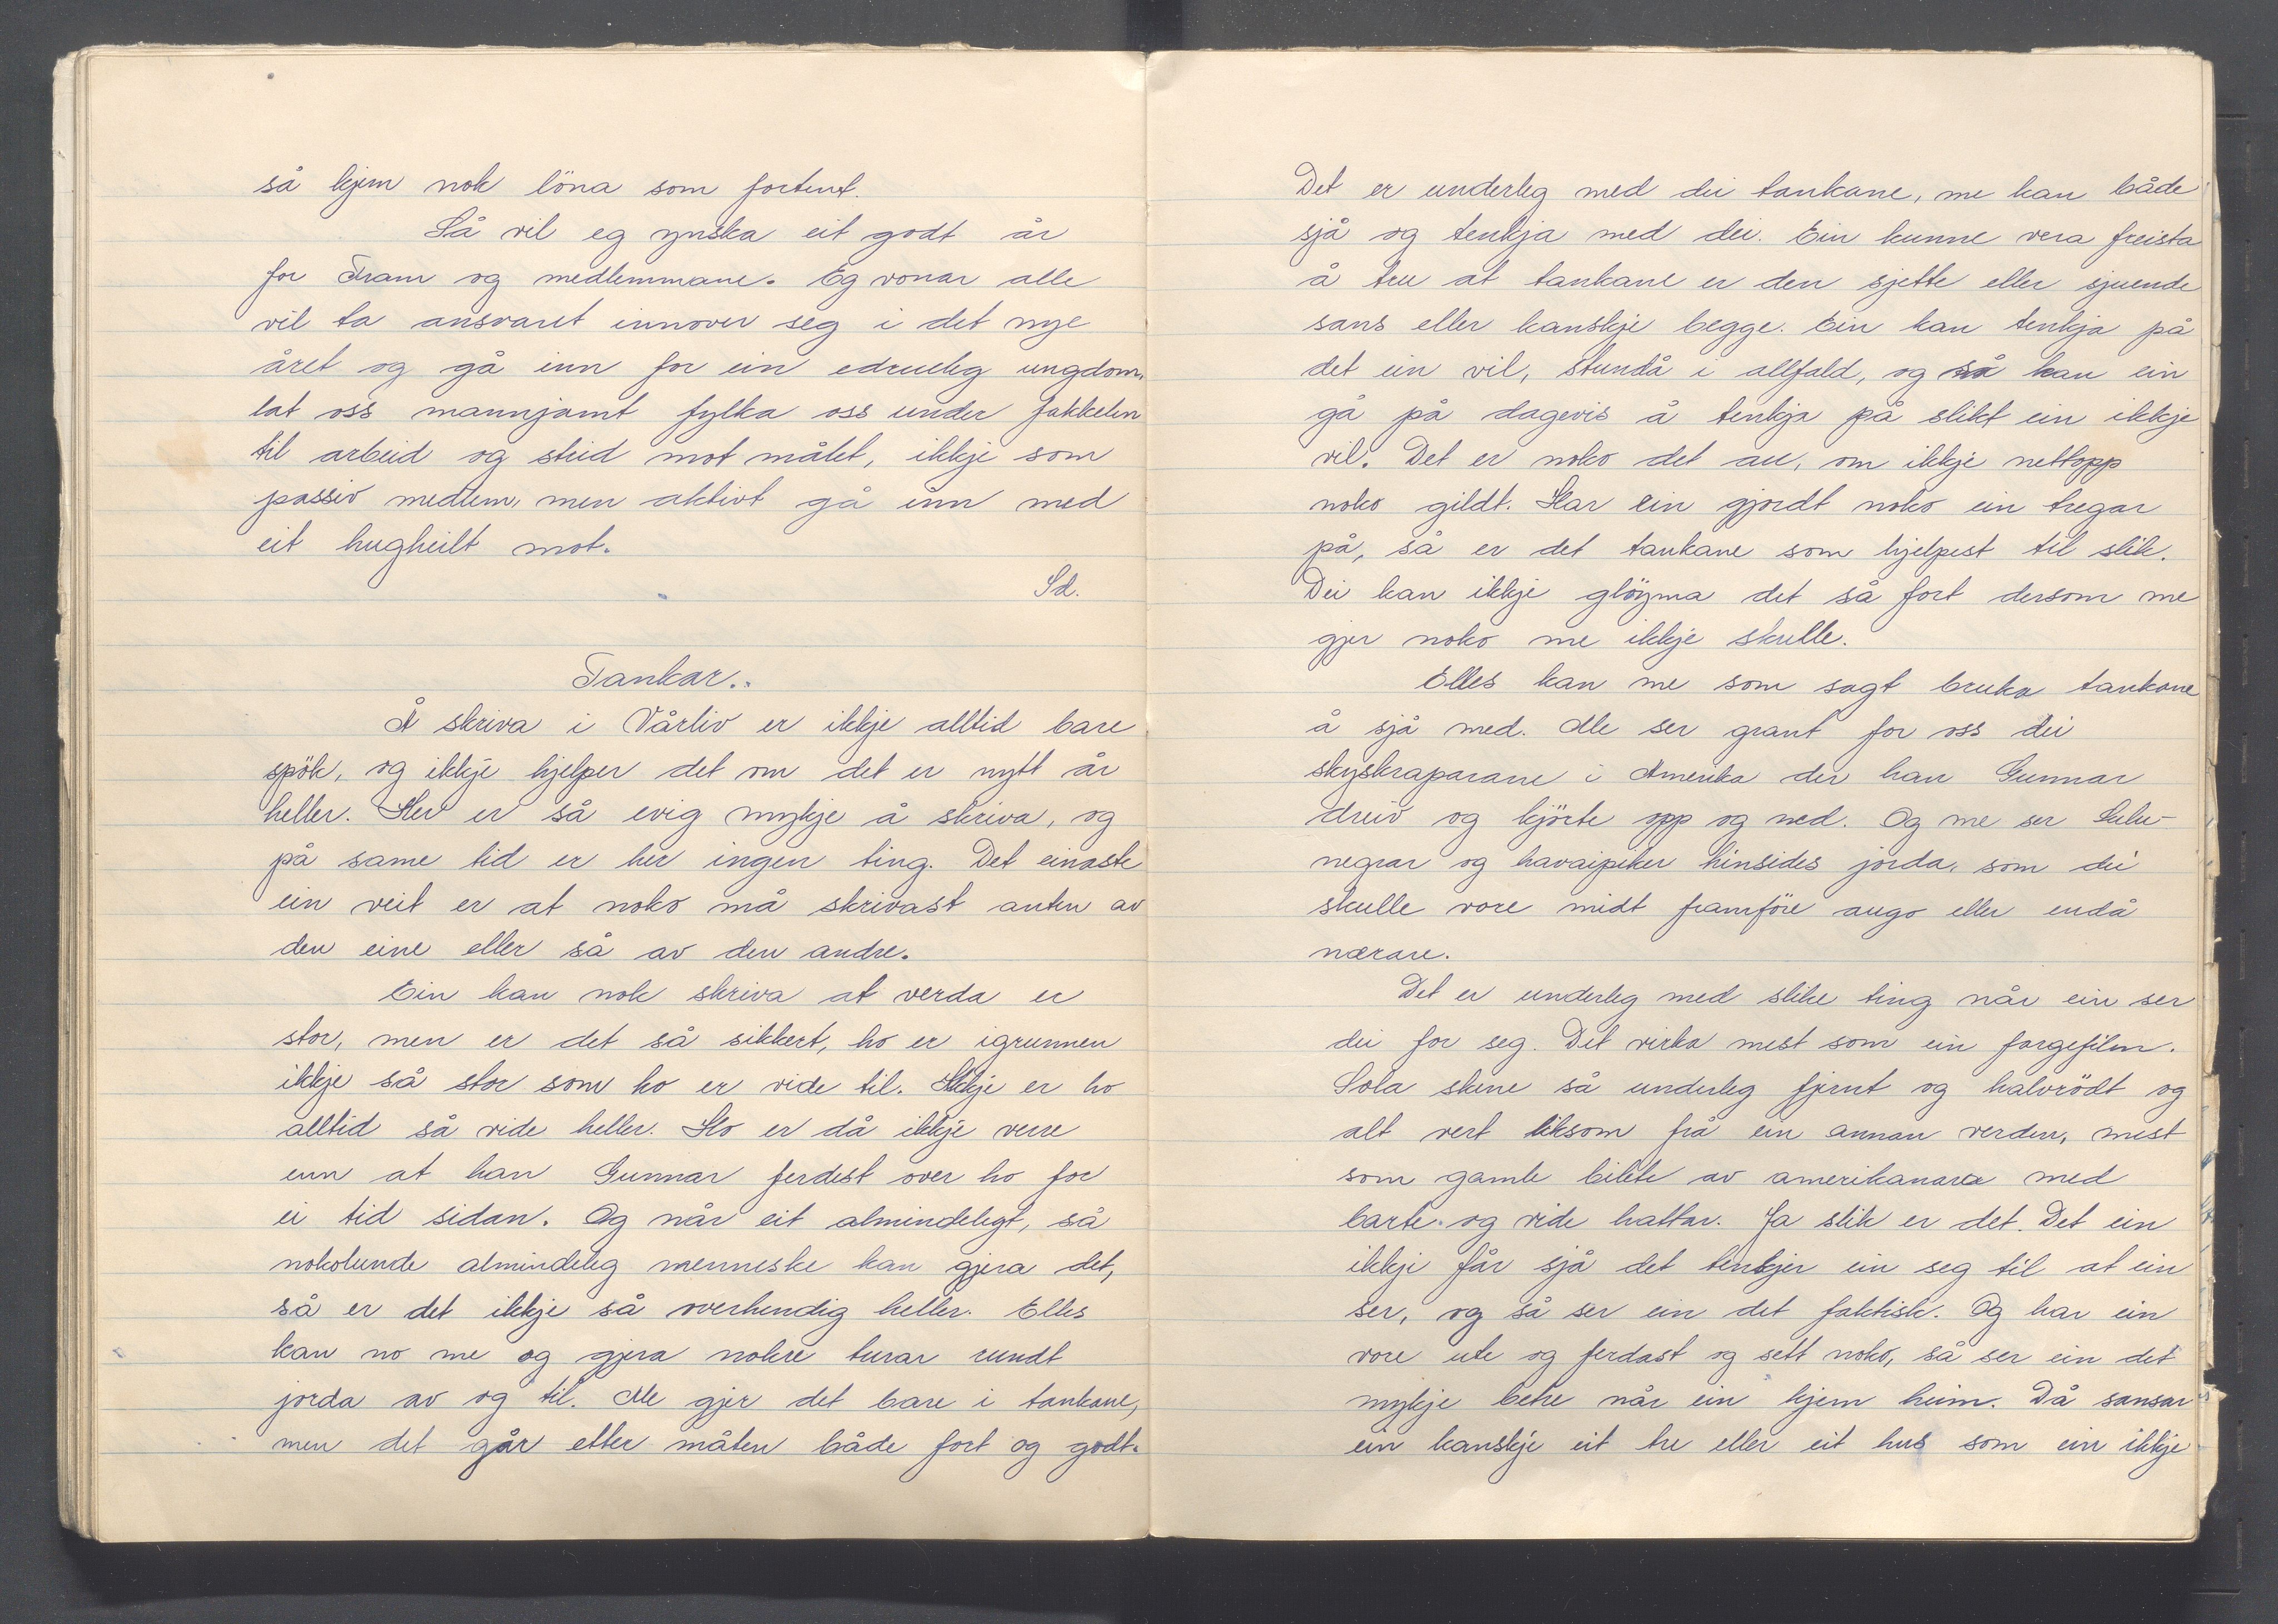 så kjem nok löna som fortent.
Så vil eg ynska eit godt år
for Fram og medlemmane. Eg vonar alle
vil ta ansvaret innover seg i det nye
året og gå inn for ein edrueleg ungdom,
lat oss mannjamt fylka oss under fakkelen
til arbeid og strid mot målet, ikkje som
passiv medlem, men aktivt gå inn med
eit hugheilt mot.
Sd.
Tankar..
Å skriva i Vårliv er ikkje alltid bare
spök, og ikkje hjelper det om det er nytt år
heller. Her er så evig mykje å skriva, og
på same tid er her ingen ting. Det einaste
ein veit er at noko må skrivast anten av
den eine eller så av den andre.
Ein kan nok skriva at verda er
stor, men er det så sikkert, ho er igrunnen
ikkje så stor som ho er vide til. Ikkje er ho
alltid så vide heller. Ho er då ikkje verre
enn at han Gunnar ferdest over ho for
ei tid sidan. Og når eit almindelegt, så
nokolunde almindeleg menneske kan gjera det,
så er det ikkje så overhendig heller. Elles
kan no me og gjera nokre turar rundt
jorda av og til. Me gjer det bare i tankane,
men det går etter måten både fort og godt.
Det er underleg med dei tankane, me kan både
sjå og tenkja med dei. Ein kunne vera freista
å tru at tankane er den sjette eller sjuende
sans eller kanskje begge. Ein kan tenkja på
det ein vil, stundå i allfald, og så kan ein
gå på dagevis å tenkja på slikt ein ikkje
vil. Det er noko det au, om ikkje nettopp
noko gildt. Har ein gjordt noko ein tregar
på, så er det tankane som hjelpest til slik.
Dei kan ikkje glöyma det så fort dersom me
gjer noko me ikkje skulle.
Elles kan me som sagt bruka tankane
å sjå med. Me ser grant for oss dei
skyskraparane i Amerika der han Gunnar
dreiv og kjörte opp og ned. Og me ser Sulu-
negrar og havaipiker hinsides jorda, som dei
skulle vore midt framföre augo eller endå
nærare.
Det er underleg med slike ting når ein ser
dei for seg. Det virka mest som ein fargefilm.
Sola skine så underleg fjernt og halvrödt og
alt vert liksom frå ein annan verden, mest
som gamle bilete av amerikanara med
barte og vide hattar. Ja slik er det. Det ein
ikkje får sjå det tenkjer ein seg til at ein
ser, og så ser ein det faktisk. Og har ein
vore ute og ferdast og sett noko, så ser ein det
mykje betre når ein kjem heim. Då sansar
ein kanskje eit tre eller eit hus som ein ikkje